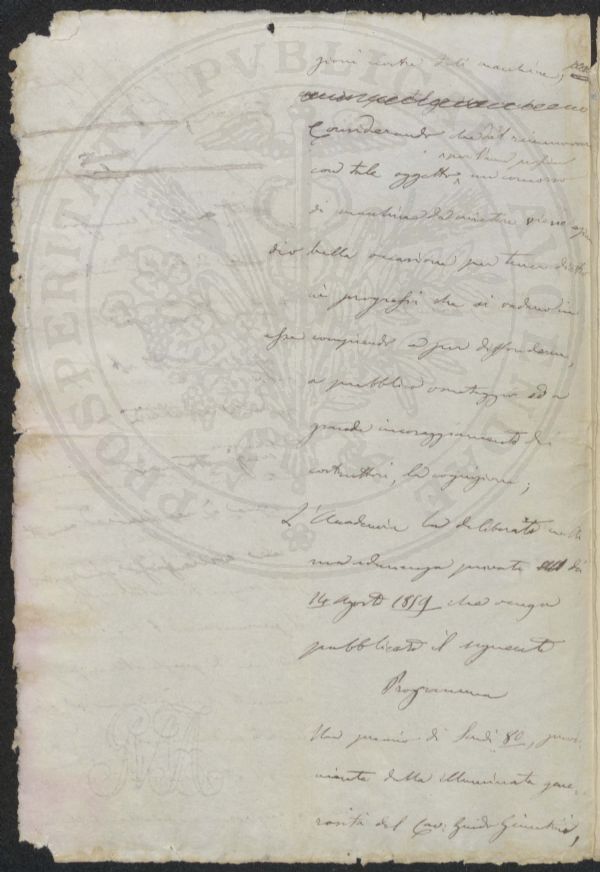 PROSPERITATI PVBLICAE AVGENDAE
zioni nostri tali macchine,
Considerando che il rinnovare
per l'anno
con tale oggetto un concorso
di macchine
dio bella occasione per tener dietro
ai progressi che si vedono in
esse compiendo e per diffonderne,
a pubblico vantaggio ed a
grande incoraggiamento dei
costruttori, la cognizione;
L'Accademia ha deliberato nella
sua adunanza privata di
14 Agosto 1859 che venga
pubblicato il seguente
Programma
Un premio di Scudi 80, prov-
niente dalla illuminata gene-
rosità del Cav. Guido